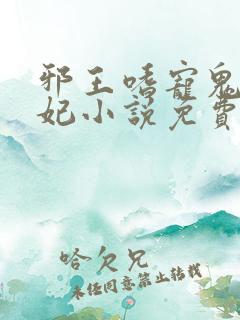 邪王嗜寵鬼
妃小說免費
哈欠兄
未经同意禁止转载